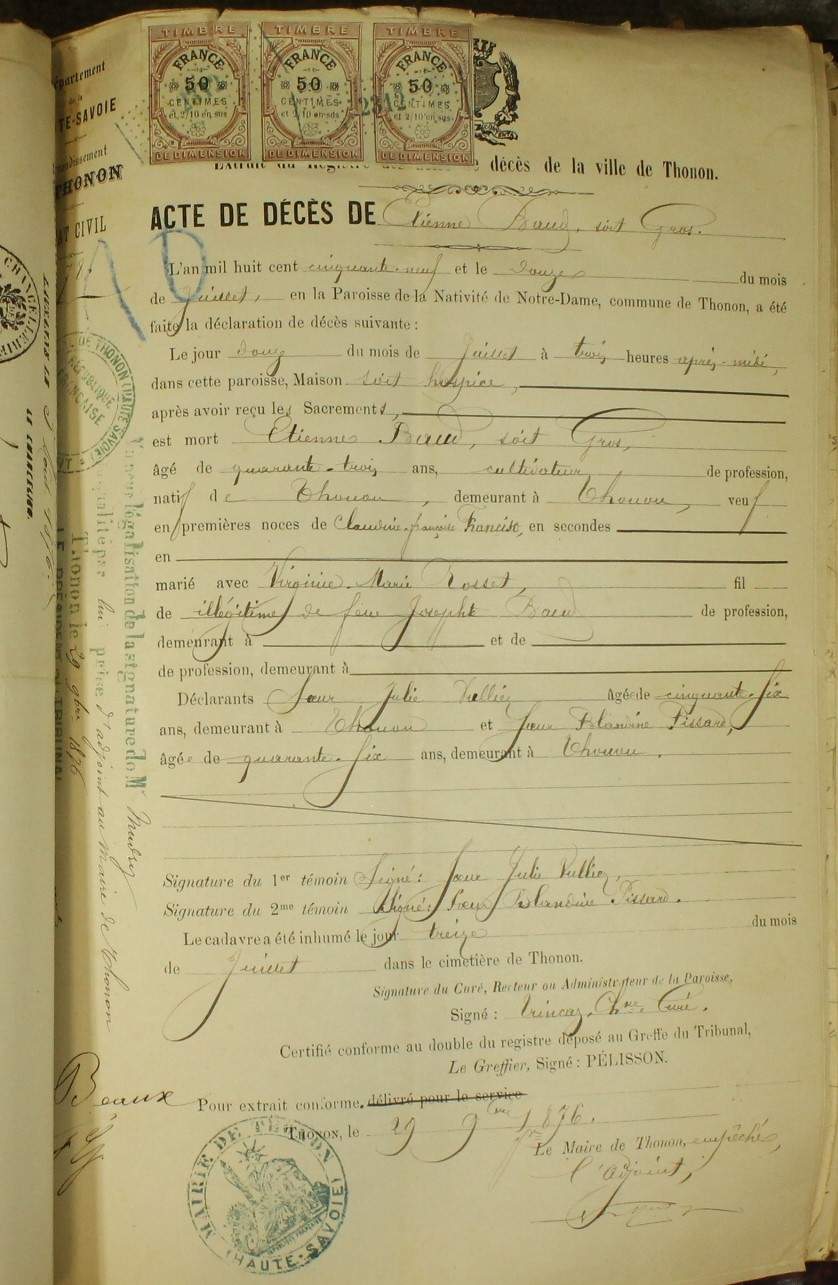 TIMBRE TIMBRE TIMBRE
FRANCE FRANCE FRANCE
50 50 50
CENTIMES CENTIMES CENTIMES
et 2/10 en sus et 2/10 en sus et 2/10 en sus
DE DIMENSION DE DIMENSION DE DIMENSION
épartement
de la
TE-SAVOIE
THONON
CIVIL
Extrait du Registre décès de la ville de Thonon.
ACTE DE DÉCÈS DE Etienne Baud, soit Gros.
L'an mil huit cent cinquante-neuf et le douze du mois
de Juillet, en la Paroisse de la Nativité de Notre-Dame, commune de Thonon, a été
faite la déclaration de décès suivante :
Le jour douz du mois de Juillet à trois heures après-midi,
dans cette paroisse, Maison soit hospice,
après avoir reçu les Sacrements,
est mort Etienne Baud, soit Gros,
âgé de quarante-trois ans, cultivateur de profession,
natif de Thonon, demeurant à Thonon, veuf
en premières noces de Claudine-françoise Francisc, en secondes
en
marié avec Virginie-Marie Rosset, fil
de illégitime de feu Josepht Baud de profession,
demeurant à et de
de profession, demeurant à
Déclarants Sœur Julie Vulliez âgée de cinquante-six
ans, demeurant à Thonon et Sœur Blandine Pissard,
âgée de quarante-six ans, demeurant à Thonon.
Signature du 1er témoin Signé: Sœur Julie Vulliez,
Signature du 2me témoin Signé: Sœur Blandine Pissard.
Le cadavre a été inhumé le jour treize du mois
de Juillet dans le cimetière de Thonon.
Signature du Curé, Recteur ou Administrateur de la Paroisse,
Signé : Trincaz, Chne Curé.
Certifié conforme au double du registre déposé au Greffe du Tribunal,
Le Greffier, Signé : PÉLISSON.
Pour extrait conforme. délivré pour le service
Thonon, le 29 9bre 1876.
Pr Le Maire de Thonon, empêché,
l'adjoint,
MAIRIE DE THONON
(HAUTE-SAVOIE)
Beaux
DE THONON (HAUTE SAVOIE)
RÉPUBLIQUE FRANÇAISE
légalisation de la signature de Mr Mudry
qualité par lui prise d'adjoint au maire de Thonon
Thonon le 29 9bre 1876
LE PRÉSIDENT DU TRIBUNAL